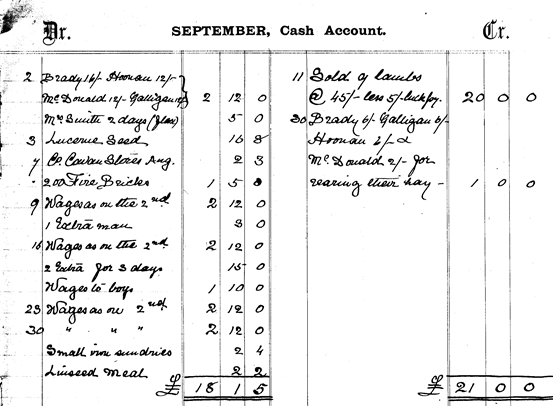 Dr. SEPTEMBER, Cash Account. Cr.
2 Brady 16/- Hoonan 12/-
McDonald 12/- Galligan 12/- 2 12 0
Mrs Smith 2 days (flax) 5 0
3 Lucerne Seed 16 8
7 Co. Cavan Stores Aug. 2 3
" 200 Fire Bricks 1 5 0
9 Wages as on the 2nd 2 12 0
1 Extra man 3 0
16 Wages as on the 2nd 2 12 0
2 Extra for 3 days 15 0
Wages to boys 1 10 0
23 Wages as on 2nd 2 12 0
30 " " " 2 12 0
Small iron sundries 2 4
Linseed Meal 2 2
£ 18 1 5
11 Sold 9 lambs
@ 45/- less 5/- luck 20 0 0
30 Brady 6/- Galligan 6/-
Hoonan 6/- &
McDonald 2/- for
rearing their hay - 1 0 0
£ 21 0 0